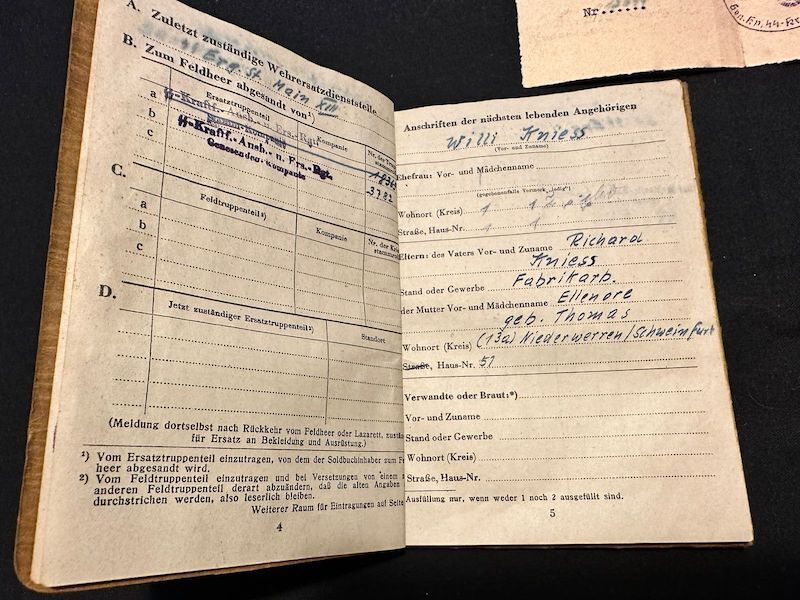 Nr.
A. Zuletzt zuständige Wehrersatzdienststelle
Main XIII
B. Zum Feldheer abgesandt von¹)
Ersatztruppenteil
Kompanie
Nr. der
a
b
c
ϟϟ-Kraftf. Ausb. u. Ers.-Rgt.
ϟϟ-Kraftf.-Ausb. u. Ers.-Rgt.
Genesenden-Kompanie
C.
Feldtruppenteil²)
Kompanie
Nr. der
a
b
c
D.
Jetzt zuständiger Ersatztruppenteil²)
Standort
(Meldung dortselbst nach Rückkehr vom Feldheer oder Lazarett,
für Ersatz an Bekleidung und Ausrüstung.)
¹) Vom Ersatztruppenteil einzutragen, von dem der Soldbuchinhaber zum
heer abgesandt wird.
²) Vom Feldtruppenteil einzutragen und bei Versetzungen von einem
anderen Feldtruppenteil derart abzuändern, daß die alten Angaben
durchstrichen werden, also leserlich bleiben.
Weiterer Raum für Eintragungen auf Seite
4
Anschriften der nächsten lebenden Angehörigen
Willi Kniess
(Vor- und Zuname)
Ehefrau: Vor- und Mädchenname
(gegebenenfalls Vermerk „ledig")
Wohnort (Kreis)
Straße, Haus-Nr.
Eltern: des Vaters Vor- und Zuname Richard
Kniess
Stand oder Gewerbe Fabrikarb.
der Mutter Vor- und Mädchenname Ellenore
geb. Thomas
Wohnort (Kreis) (13a) Niederwerren/Schweinfurt
Straße, Haus-Nr. 51
Verwandte oder Braut:*)
Vor- und Zuname
Stand oder Gewerbe
Wohnort (Kreis)
Straße, Haus-Nr.
Ausfüllung nur, wenn weder 1 noch 2 ausgefüllt sind.
5